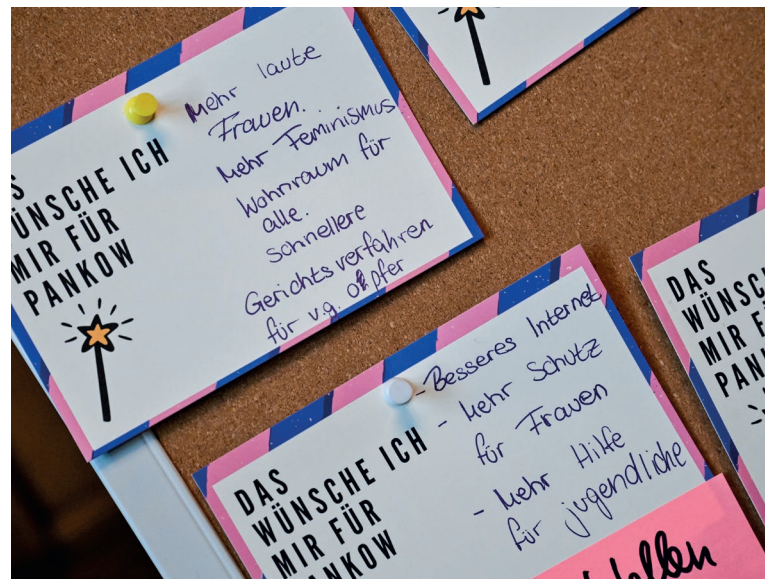 DAS
WÜNSCHE ICH
MIR FÜR
PANKOW
Mehr laute
Frauen.
Mehr Feminismus
Wohnraum für
alle.
schnellere
Gerichtsverfahren
für v.g. opfer
DAS
WÜNSCHE ICH
MIR FÜR
PANKOW
- Besseres Internet
- Mehr Schutz
für Frauen
- Mehr Hilfe
für jugendliche
DAS
WÜNSC
MIR F
PAN